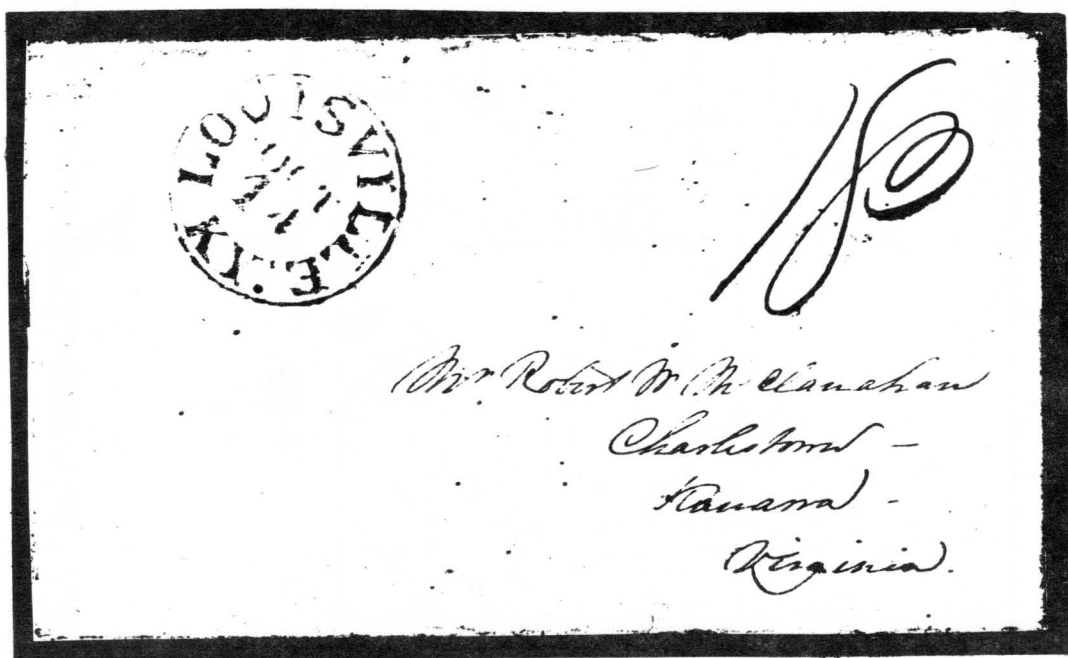 LOUISVILLE. KY
18
Mr Robert W McClanahan
Charlestown -
Kanawa -
Virginia.